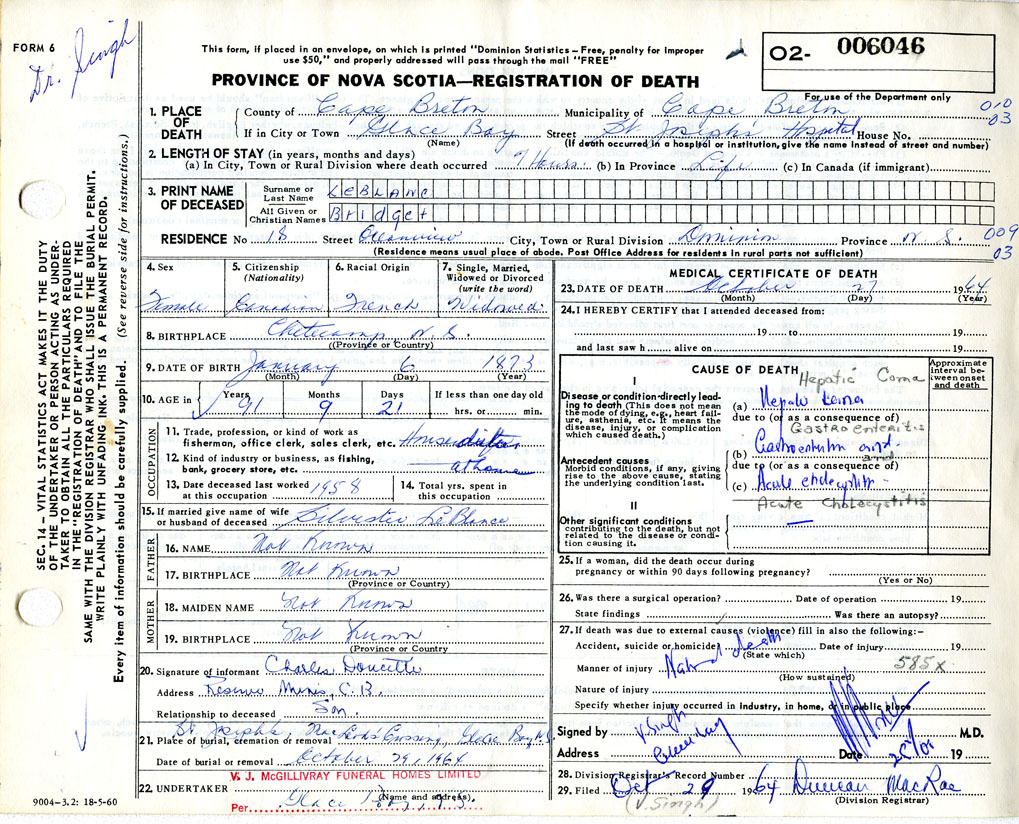 FORM 6
Dr. Singh
This form, if placed in an envelope, on which is printed "Dominion Statistics – Free, penalty for improper
use $50," and properly addressed will pass through the mail "FREE"
PROVINCE OF NOVA SCOTIA—REGISTRATION OF DEATH
O2- 006046
For use of the Department only
010
03
1. PLACE OF DEATH County of Cape Breton Municipality of Cape Breton
If in City or Town Glace Bay Street St. Joseph's Hospital House No.
(Name) (If death occurred in a hospital or institution, give the name instead of street and number)
2. LENGTH OF STAY (in years, months and days)
(a) In City, Town or Rural Division where death occurred 9 Hours (b) In Province Life (c) In Canada (if immigrant)
3. PRINT NAME OF DECEASED
Surname or Last Name LEBLANC
All Given or Christian Names Bridget
RESIDENCE No 18 Street Oceanview City, Town or Rural Division Dominion Province N.S.
009
03
(Residence means usual place of abode. Post Office Address for residents in rural parts not sufficient)
4. Sex 5. Citizenship (Nationality) 6. Racial Origin 7. Single, Married, Widowed or Divorced (write the word)
Female Canadian French Widowed
8. BIRTHPLACE Cheticamp N.S.
(Province or Country)
9. DATE OF BIRTH January 6 1873
(Month) (Day) (Year)
10. AGE in Years 91 Months 9 Days 21 If less than one day old hrs. or min.
OCCUPATION
11. Trade, profession, or kind of work as
fisherman, office clerk, sales clerk, etc.
12. Kind of industry or business, as fishing,
bank, grocery store, etc. at home
13. Date deceased last worked at this occupation 1958
14. Total yrs. spent in this occupation
15. If married give name of wife
or husband of deceased Silvester LeBlanc
FATHER
16. NAME Not Known
17. BIRTHPLACE Not Known
(Province or Country)
MOTHER
18. MAIDEN NAME Not Known
19. BIRTHPLACE Not Known
(Province or Country)
20. Signature of informant Charles Doucette
Address Reserve Mines, C.B.
Relationship to deceased Son
St. Joseph's, MacLeods Crossing, Glace Bay N.S.
21. Place of burial, cremation or removal
Date of burial or removal October 29, 1964
V. J. McGILLIVRAY FUNERAL HOMES LIMITED
22. UNDERTAKER (Name and address)
Per Glace Bay, N.S.
9004-3.2: 18-5-60
MEDICAL CERTIFICATE OF DEATH
23. DATE OF DEATH October 27 1964
(Month) (Day) (Year)
24. I HEREBY CERTIFY that I attended deceased from:
19 to 19
and last saw h alive on 19
CAUSE OF DEATH
Approximate interval between onset and death
Hepatic Coma
I
Disease or condition directly leading to death (This does not mean the mode of dying, e.g., heart failure, asthenia, etc. It means the disease, injury, or complication which caused death.)
(a) Hepatic Coma
due to (or as a consequence of)
Gastroenteritis
Antecedent causes
Morbid conditions, if any, giving rise to the above cause, stating the underlying condition last.
(b) Gastroenteritis and
and
due to (or as a consequence of)
(c) Acute cholecystitis
Acute Cholecystitis
II
Other significant conditions
contributing to the death, but not related to the disease or condition causing it.
25. If a woman, did the death occur during
pregnancy or within 90 days following pregnancy?
(Yes or No)
26. Was there a surgical operation? Date of operation 19
State findings Was there an autopsy?
27. If death was due to external causes (violence) fill in also the following:–
Accident, suicide or homicide Date of injury 19
(State which)
Natural death
585x
Manner of injury
(How sustained)
Nature of injury
Specify whether injury occurred in industry, in home, or in public place
Signed by V. Singh M.D.
Address Date 19
28. Division Registrar's Record Number
29. Filed Oct 29 1964 Duncan MacRae
(V. Singh) (Division Registrar)
SEC. 14 – VITAL STATISTICS ACT MAKES IT THE DUTY
OF THE UNDERTAKER OR PERSON ACTING AS UNDER-
TAKER TO OBTAIN ALL THE PARTICULARS REQUIRED
IN THE "REGISTRATION OF DEATH" AND TO FILE THE
SAME WITH THE DIVISION REGISTRAR WHO SHALL ISSUE THE BURIAL PERMIT.
WRITE PLAINLY WITH UNFADING INK. THIS IS A PERMANENT RECORD.
Every item of information should be carefully supplied. (See reverse side for instructions.)